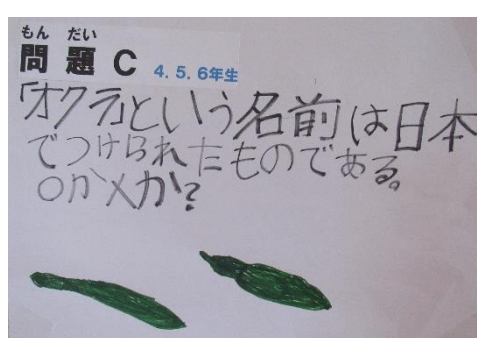 もん だい
問 題 C 4.5.6年生
「オクラ」という名前は日本
でつけられたものである。
○か×か?